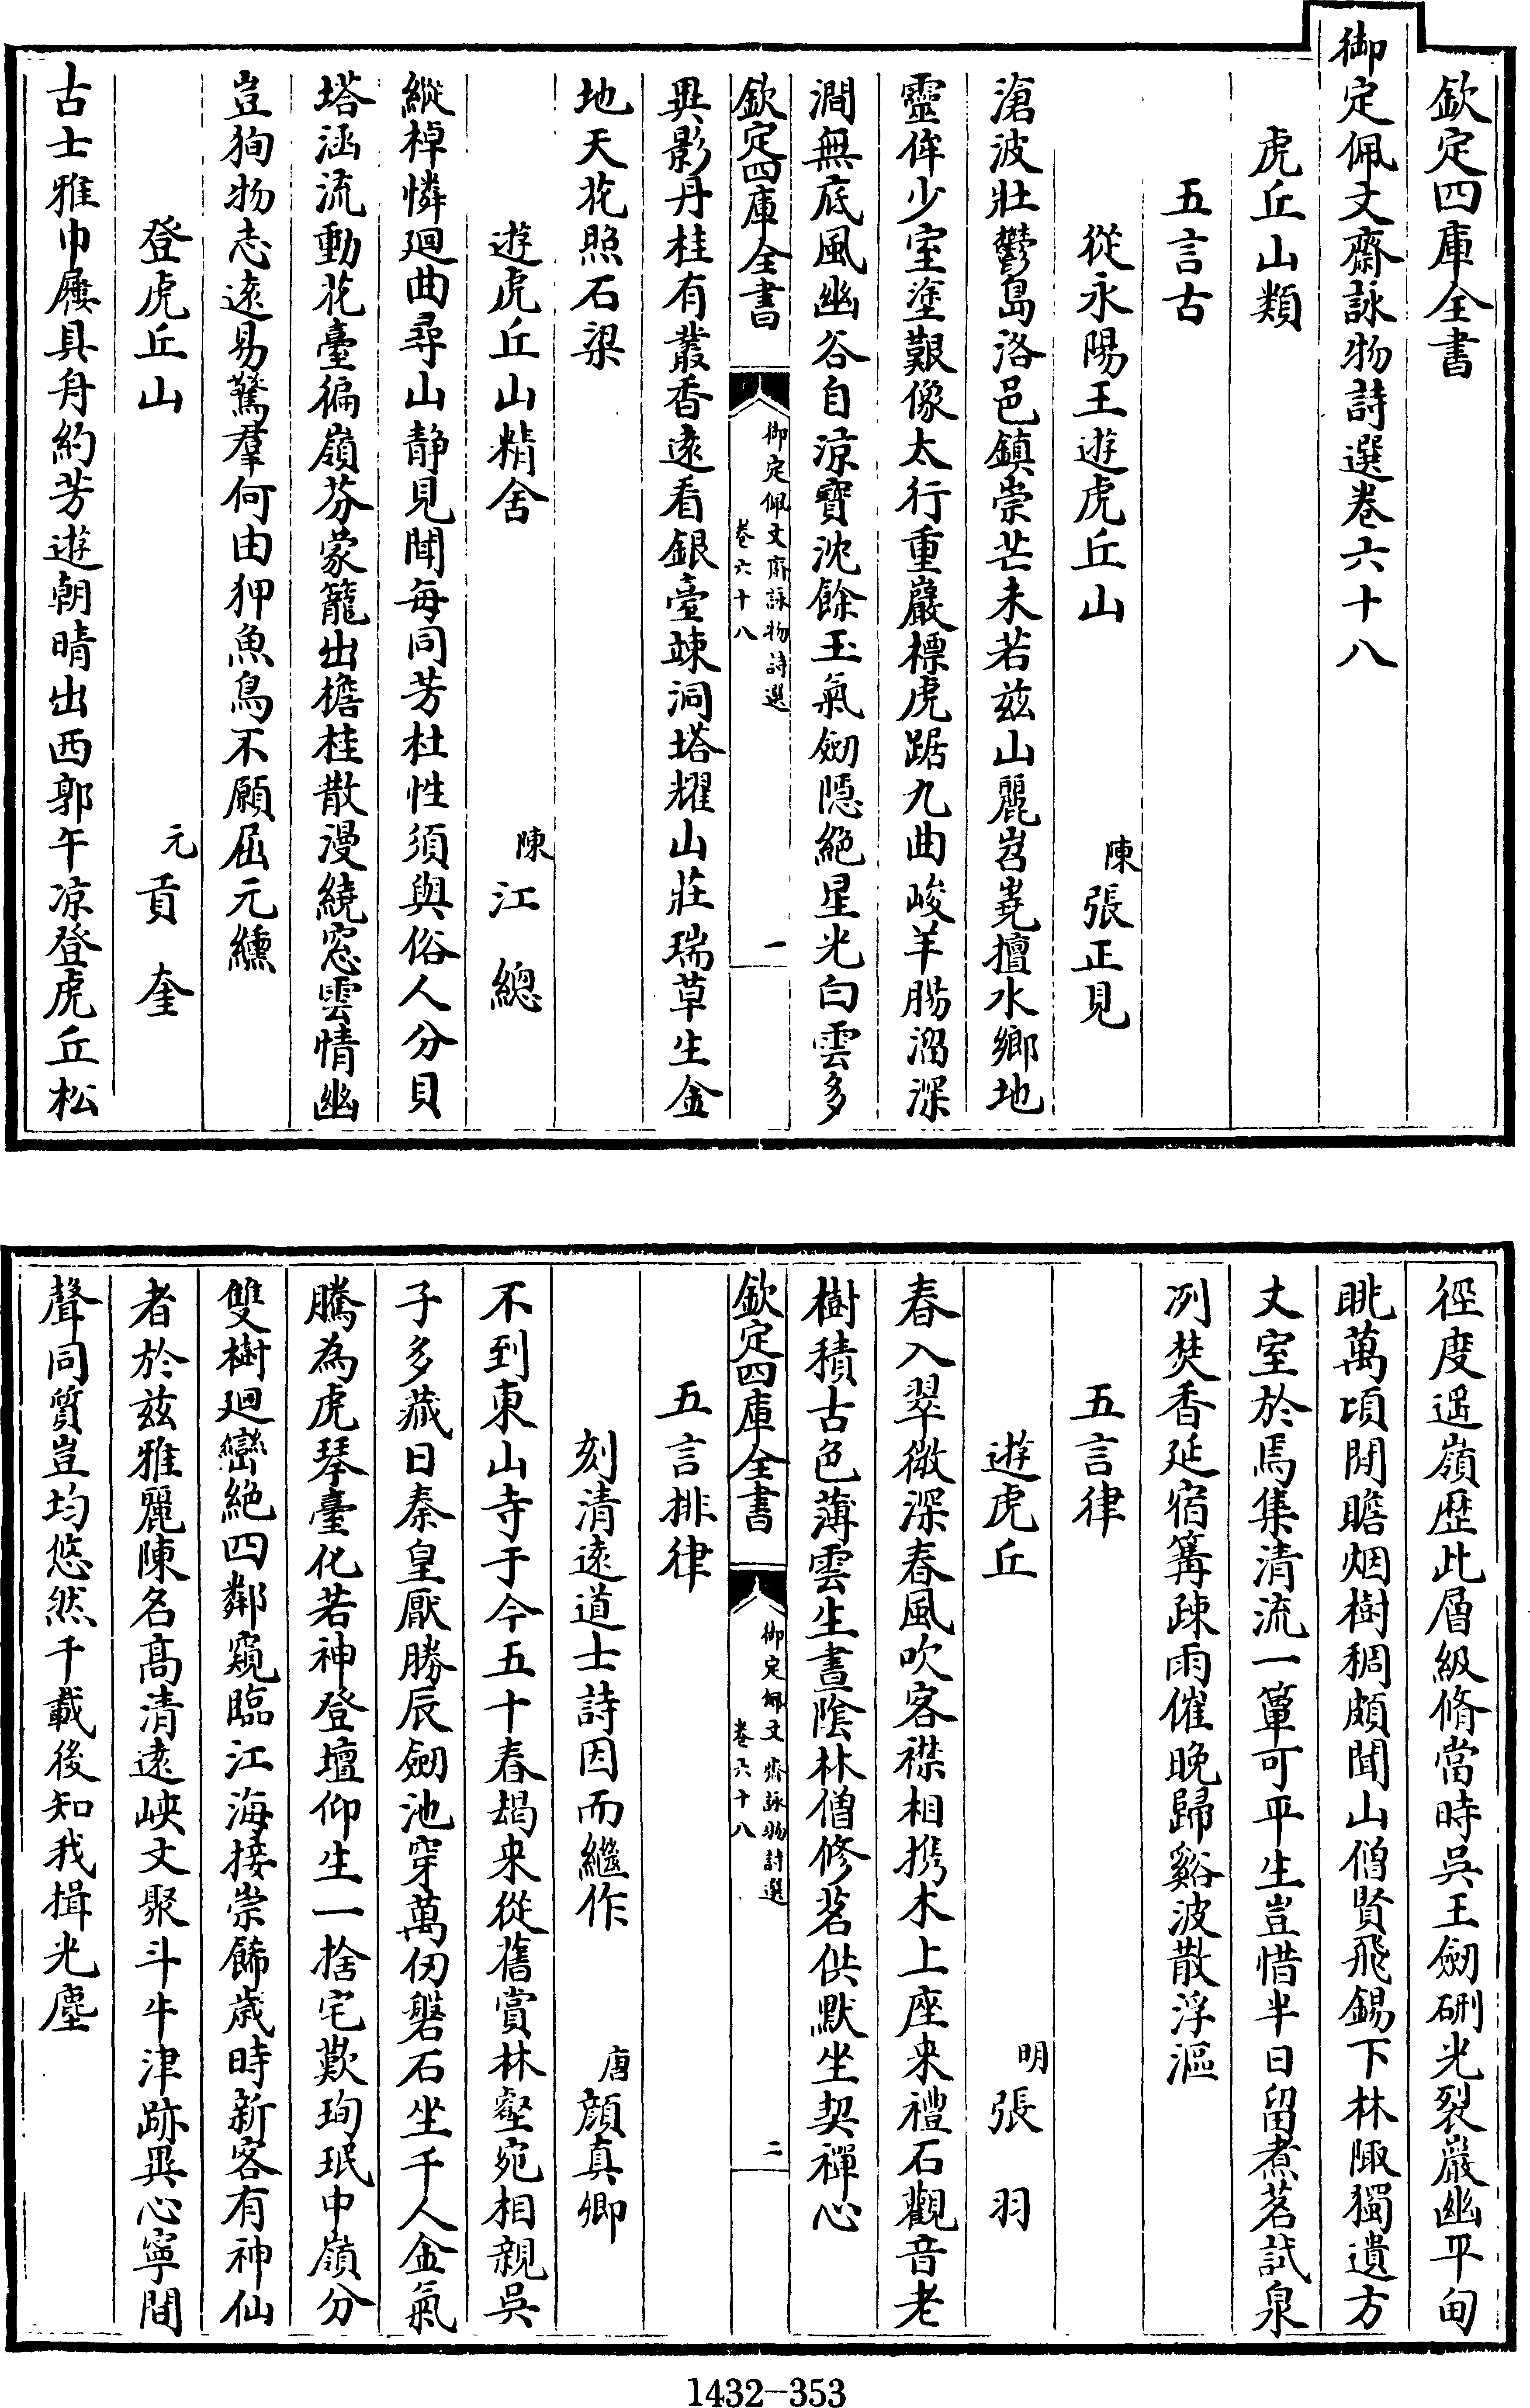 欽定四庫全書
御定佩文齋詠物詩選卷六十八
虎丘山類
五言古
從永陽王遊虎丘山 陳張正見
滄波壯鬱島洛邑鎮崇芒未若兹山麗岧嶤擅水鄉地
靈侔少室塗艱像太行重巖標虎踞九曲峻羊腸溜深
澗無底風幽谷自凉寳沈餘玉氣劒隱絶星光白雲多
欽定四庫全書 御定佩文齋詠物詩選 卷六十八 一
異影丹桂有叢香逺看銀臺竦洞塔耀山莊瑞草生金
地天花照石梁
遊虎丘山精舍 陳江總
縱棹憐廻曲尋山静見聞每同芳杜性須與俗人分貝
塔涵流動花臺徧嶺芬蒙籠出檐桂散漫繞窓雲情幽
豈狥物志逺易驚羣何由狎魚鳥不願屈元纁
登虎丘山 元貢奎
古士雅巾屨具舟約芳遊朝晴出西郭午凉登虎丘松
徑度遥嶺歴此層級脩當時吳王劒硎光裂巖幽平甸
眺萬頃閒瞻烟樹稠頗聞山僧賢飛錫下林陬獨遺方
丈室於焉集清流一簞可平生豈惜半日留煮茗試泉
冽焚香延宿篝疎雨催晚歸谿波散浮漚
五言律
遊虎丘 明張羽
春入翠微深春風吹客襟相携木上座来禮石觀音老
樹積古色薄雲生晝陰林僧修茗供默坐契禪心
欽定四庫全書 御定佩文齋詠物詩選 卷六十八 二
五言排律
刻清逺道士詩因而繼作 唐顔真卿
不到東山寺于今五十春朅来從舊賞林壑宛相親吳
子多藏日秦皇厭勝辰劒池穿萬仞磐石坐千人金氣
騰為虎琴臺化若神登壇仰生一捨宅歎珣珉中嶺分
雙樹廻巒絶四鄰窺臨江海接崇飾歳時新客有神仙
者於兹雅麗陳名髙清逺峽文聚斗牛津跡異心寧間
聲同質豈均悠然千載後知我揖光塵
1432-353